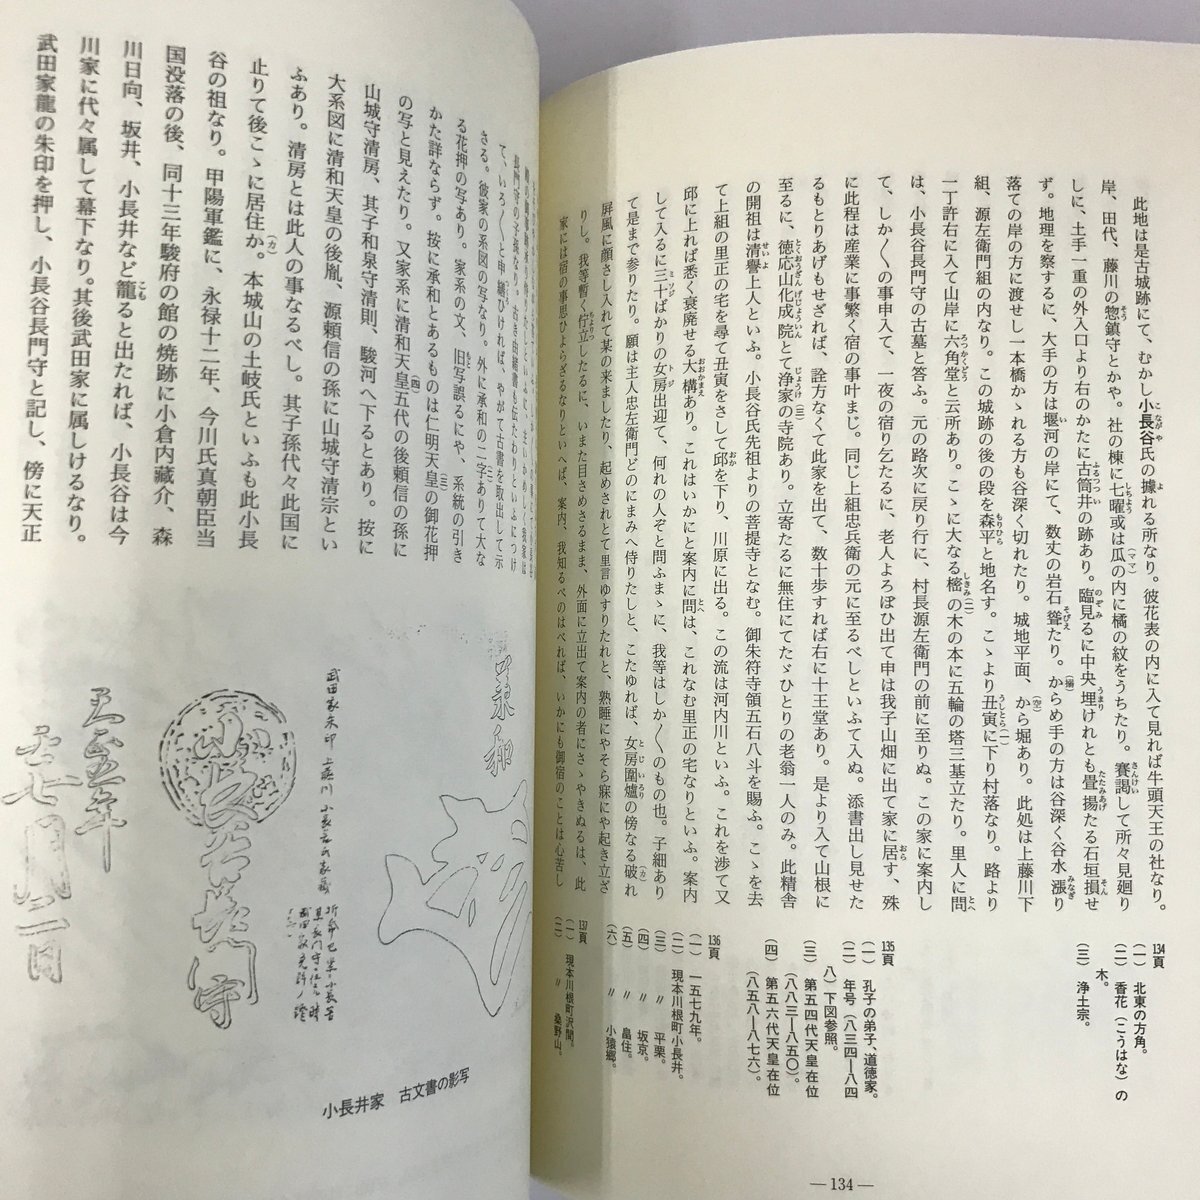 此地は是古城跡にて、むかし小長谷氏の據れる所なり。彼花表の内に入て見れば牛頭天王の社なり。
岸、田代、藤川の惣鎮守とかや。社の棟に七曜或は瓜の内に橘の紋をうちたり。賽謁して所々見廻り
しに、土手一重の外入口より右のかたに古筒井の跡あり。臨見るに中央埋けれとも畳揚たる石垣損せ
ず。地理を察するに、大手の方は堰河の岸にて、数丈の岩石聳たり。からめ手の方は谷深く谷水漲り
落ての岸の方に渡せし一本橋かゝれる方も谷深く切れたり。城地平面、から堀あり。此処は上藤川下
組、源左衛門組の内なり。この城跡の後の段を森平と地名す。こゝより丑寅に下り村落なり。路より
二丁許右に入て山岸に六角堂と云所あり。こゝに大なる樒の木の本に五輪の塔三基立たり。里人に問
は、小長谷長門守の古墓と答ふ。元の路次に戻り行に、村長源左衛門の前に至りぬ。この家に案内し
て、しか〱の事申入て、一夜の宿り乞たるに、老人よろぼひ出て申は我子山畑に出て家に居す、殊
に此程は産業に事繁く宿の事叶まじ。同じ上組忠兵衛の元に至るべしといふて入ぬ。添書出し見せた
るもとりあげもせざれば、詮方なくて此家を出て、数十歩すれば右に十王堂あり。是より入て山根に
至るに、徳応山化成院とて浄家の寺院あり。立寄たるに無住にてたゞひとりの老翁一人のみ。此精舎
の開祖は清譽上人といふ。小長谷氏先祖よりの菩提寺となむ。御朱符寺領五石八斗を賜ふ。こゝを去
て上組の里正の宅を尋て丑寅をさして邱を下り、川原に出る。この流は河内川といふ。これを渉て又
邱に上れば悉く衰廃せる大構あり。これはいかにと案内に問は、これなむ里正の宅なりといふ。案内
して入るに三十ばかりの女房出迎て、何れの人ぞと問ふまゝに、我等はしか〱のもの也。子細あり
て是まで参りたり。願は主人忠左衛門どのにまみへ侍りたしと、こたゆれば、女房圍爐の傍なる破れ
屏風に顔さし入れて某の来ましたり、起めされとて里言ゆすりたれと、熟睡にやそら寐にや起き立ざ
りし。我等暫く佇立したるに、いまた目さめさるまま、外面に立出て案内の者にさゝやきぬるは、此
家には宿の事思ひよらざるなりといへば、案内、我知るべのはべれば、いかにも御宿のことは心苦し
134頁
(一) 北東の方角。
(二) 香花(こうはな)の
木。
(三) 浄土宗。
135頁
(一) 孔子の弟子、道徳家。
(二) 年号(八三四―八四
八)下図参照。
(三) 第五四代天皇在位
(八三三―八五〇)。
(四) 第五六代天皇在位
(八五八―八七六)。
136頁
(一) 一五七九年。
(二) 現本川根町小長井。
(三) 〃 平栗。
(四) 〃 坂京。
(五) 〃 畠住。
(六) 〃 小猿郷。
137頁
(一) 現本川根町沢間。
(二) 〃 桑野山。
―134―
て、いろ〱と申繕ひければ、やがて古書を取出して示
さる。彼家の系図の写なり。外に承和の二字ありて大な
る花押の写あり。家系の文、旧写誤るにや、系統の引き
かた詳ならず。按に承和とあるものは仁明天皇の御花押
の写と見えたり。又家系に清和天皇五代の後頼信の孫に
山城守清房、其子和泉守清則、駿河へ下るとあり。按に
大系図に清和天皇の後胤、源頼信の孫に山城守清宗とい
ふあり。清房とは此人の事なるべし。其子孫代々此国に
止りて後こゝに居住か。本城山の土岐氏といふも此小長
谷の祖なり。甲陽軍鑑に、永禄十二年、今川氏真朝臣当
国没落の後、同十三年駿府の館の焼跡に小倉内藏介、森
川日向、坂井、小長井など籠ると出たれば、小長谷は今
川家に代々属して幕下なり。其後武田家に属しけるなり。
武田家龍の朱印を押し、小長谷長門守と記し、傍に天正
承和
武田家朱印 上藤川 小長谷氏家蔵
小長谷長門守
天正五年
七月二日
小長井家 古文書の影写